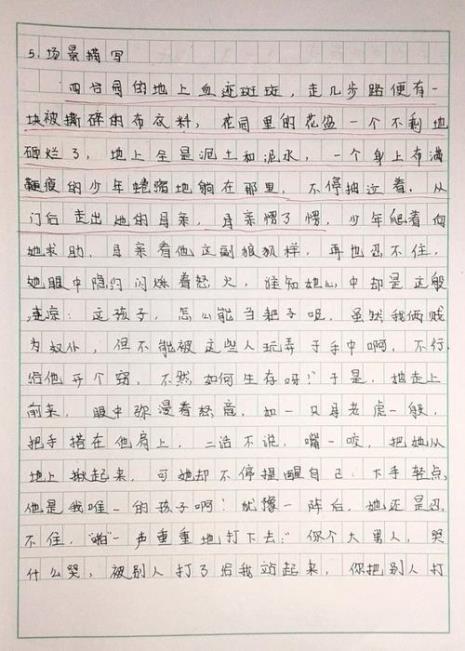 5.场景描写
四合园的地上血迹斑斑，走几步路便有一
块被撕碎的布衣料，花园里的花盆一个不剩地
砸烂了，地上全是泥土和泥水，一个身上布满
鞭痕的少年蜷缩地躺在那里，不停抽泣着，从
门后走出她的母亲，母亲愣了愣，少年爬着向
她求助，母亲看他这副狼狈样，再也忍不住，
她眼中隐约闪烁着怒火，谁知她心中却是这般
凄凉：这孩子，怎么能当靶子呢，虽然我俩贱
为奴仆，但不能被这些人玩弄于手中啊，不行，
给他开个窍，不然如何生存呀！于是，她走上
前来，眼中弥漫着怒意，如一只母老虎一般，
把手搭在他肩上，二话不说，嘴一咬，把她从
地上揪起来，可她却不停提醒自己：下手轻点，
他是我唯一的孩子啊！犹豫一阵后，她还是忍
不住，“啪”一声重重地打下去：“你个大男人，哭
什么哭，被别人打了给我站起来，你把别人打